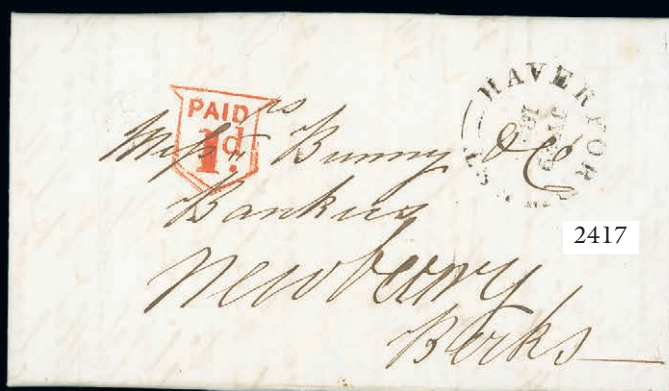 PAID
1d.
HAVERFORD
Messrs Bunny & Co
Bankers
Newberry
Berks
2417